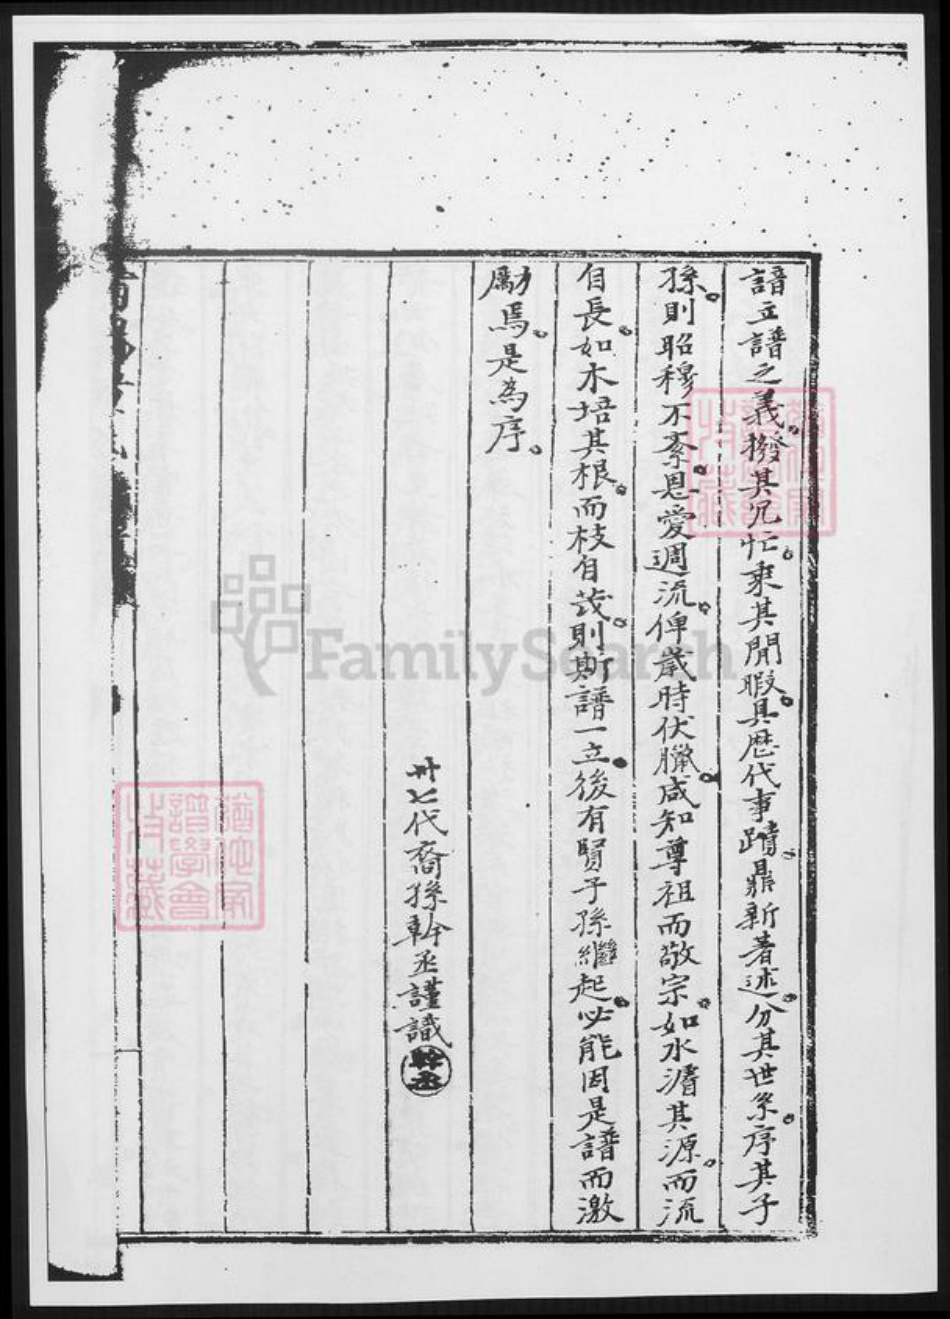 諳立譜之義。撥其冗忙。乘其閒暇。具歷代事蹟。鼎新著述。分其世系。序其子
孫。則昭穆不紊。恩愛週流。俾歲時伏臘。咸知尊祖而敬宗。如水濬其源。而流
自長。如木培其根。而枝自茂。則斯譜一立。後有賢子孫繼起。必能因是譜而激
勵焉。是為序。
卅七代裔孫幹丞謹識
幹丞
FamilySearch
譜學會
收藏